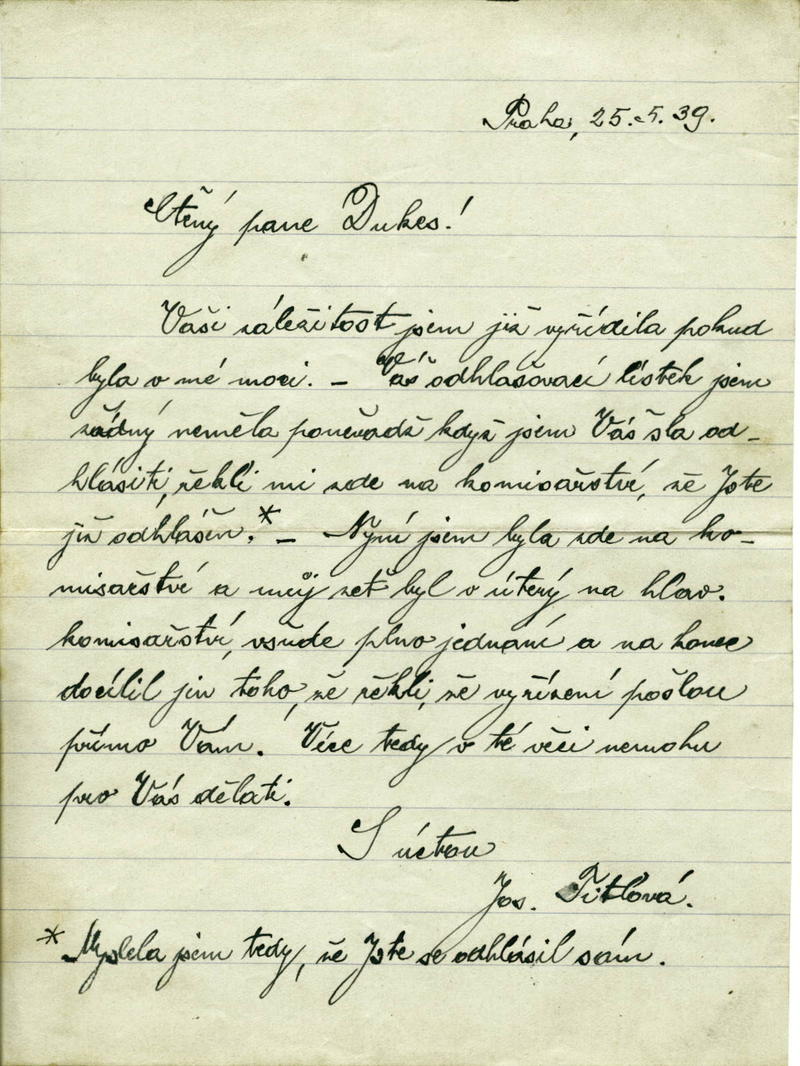 Praha, 25.5.39.
Ctěný pane Dukes!
Vaši záležitost jsem již vyřídila pokud
byla v mé moci. – Váš odhlašovací lístek jsem
žádný neměla poněvadž když jsem Vás šla od-
hlásiti, řekli mi zde na komisařství, že Jste
již odhlášen.* – Nyní jsem byla zde na ko-
misařství a můj zeť byl v úterý na hlav.
komisařství, všude plno jednání a na konec
docílil jen toho, že řekli, že vyřízení pošlou
přímo Vám. Více tedy v té věci nemohu
pro Vás dělati.
S úctou
Jos. Titlová.
* Myslela jsem tedy, že Jste se odhlásil sám.